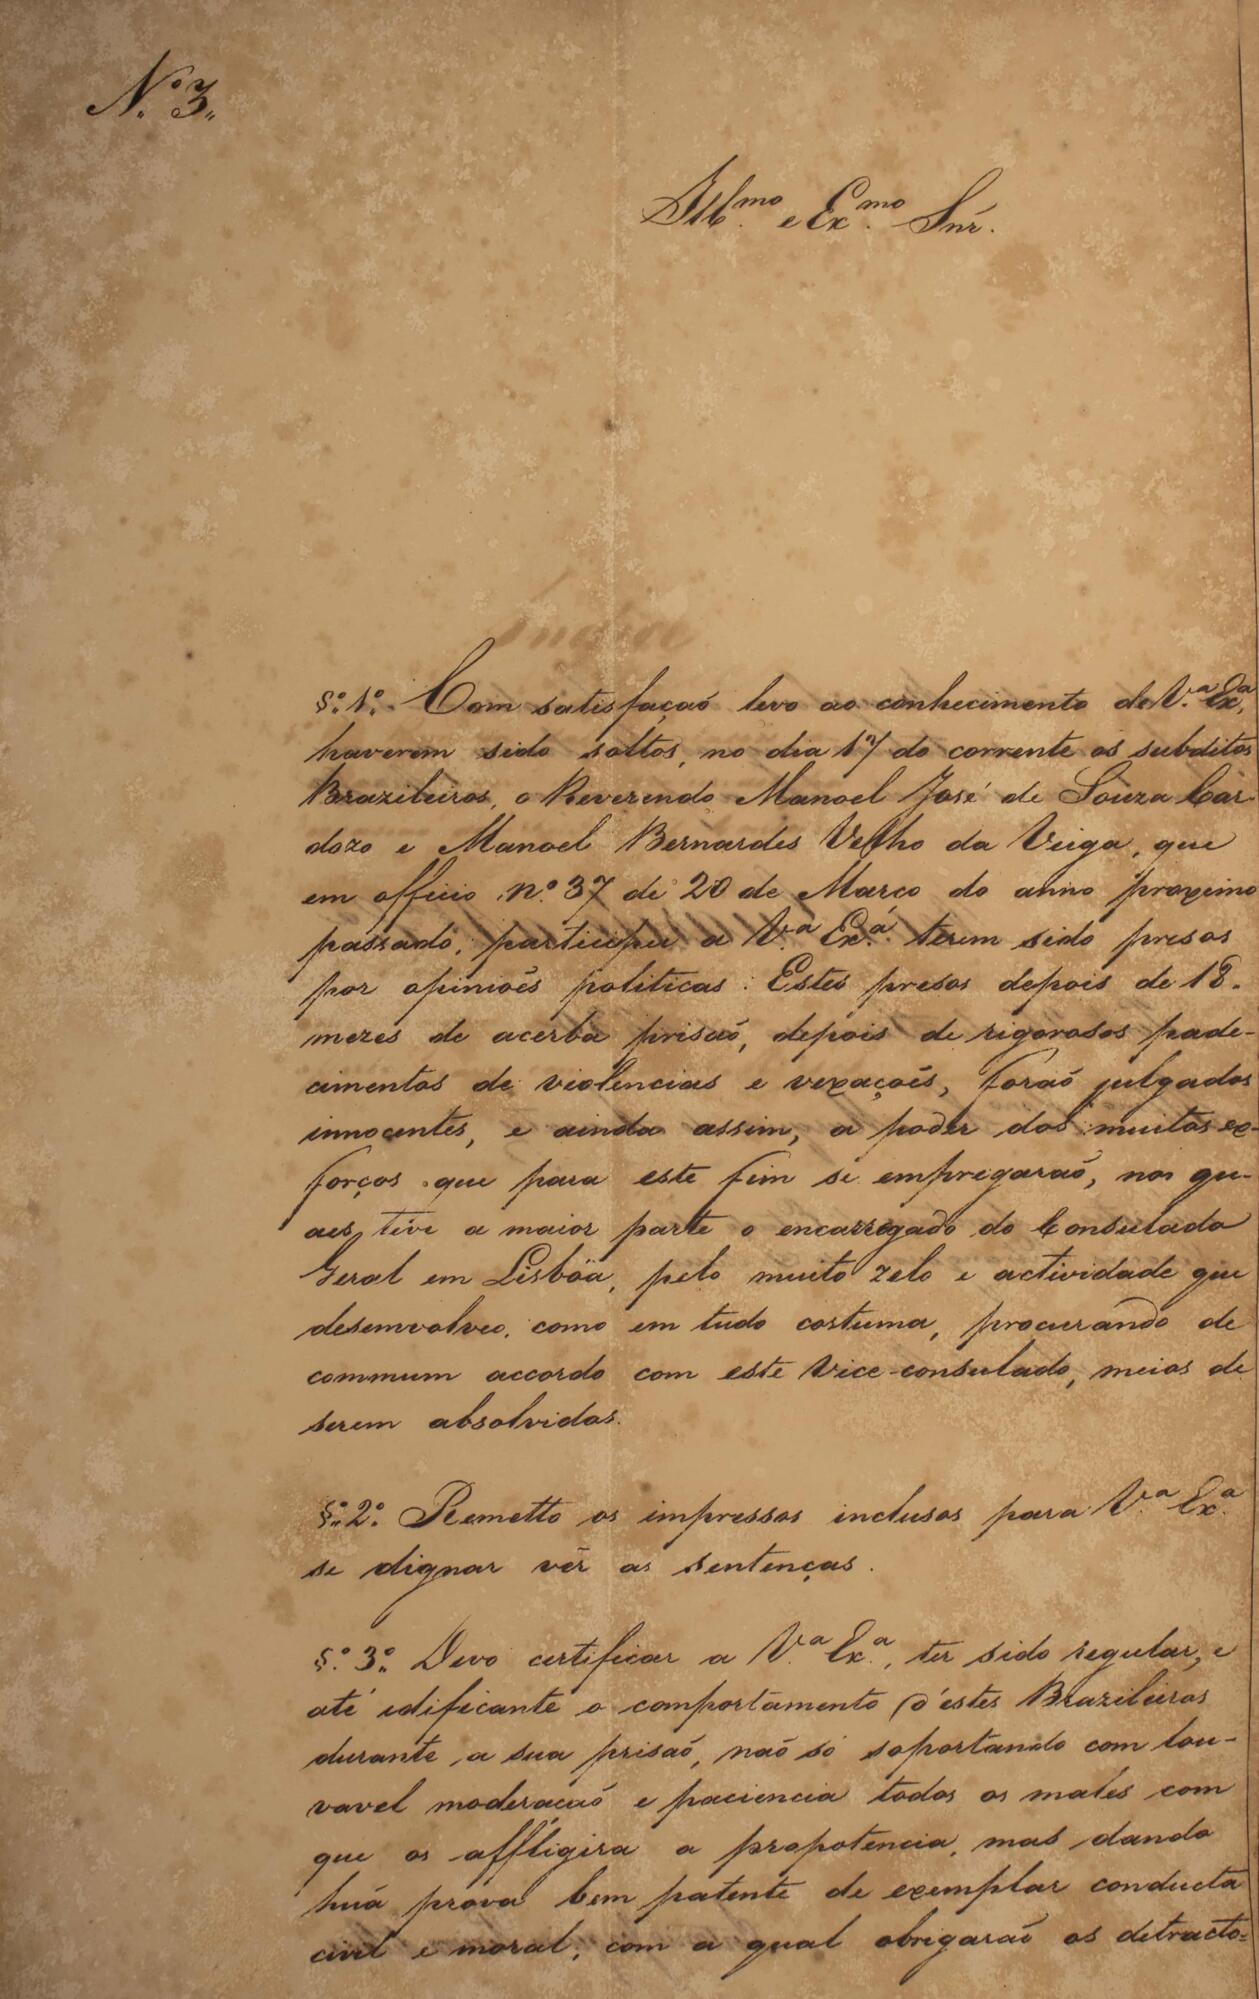 Nº 3„
Ill.mo e Ex.mo Snr.
§º 1º Com satisfaçaõ levo ao conhecimento de V.ª Ex.ª,
haverem sido soltos, no dia 17 do corrente os subditos
Brazileiros, o Reverendo Manoel José de Souza Car
dozo e Manoel Bernardes Velho da Veiga, que
em officio nº 37 de 20 de Março do anno proximo
passado, participei a V.ª Ex.ª terem sido presos
por opinioẽs politicas: Estes presos depois de 18.
mezes de acerba prisaõ, depois de rigorosos pade-
cimentos de violencias e vexaçoẽs, foraõ julgados
innocentes, e ainda assim, a poder dos muitos ex-
forços que para este fim se empregaraõ, nos qu-
aes, teve a maior parte o encarregado do Consulado
Geral em Lisböa, pelo muito zelo e actividade que
desemvolveo, como em tudo costuma, procurando de
commum accordo com este Vice-consulado, meios de
serem absolvidos.
§º 2º Remetto os impressos inclusos para V.ª Ex.ª
se dignar vêr as sentenças.
§º 3º Devo certificar a V.ª Ex.ª, ter sido regular, e
até edificante o comportamento d'estes Brazileiros
durante a sua prisaõ, naõ só soportando com lou-
vavel moderacaõ e paciencia todos os males com
que os affligira a propotencia, mas dando
huã prova bem patente de exemplar conducta
civil e moral, com a qual obrigaraõ os detracto=